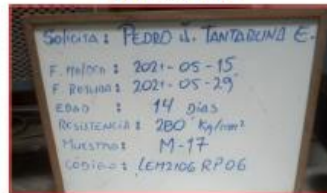 Solicita: PEDRO J. TANTARUNA E.
F. Moldeo: 2021-05-15
F. Rotura: 2021-05-29
EDAD: 14 Dias
RESISTENCIA: 280 Kg/mm²
MUESTRA: M-17
CODIGO: LEM2106 RP06